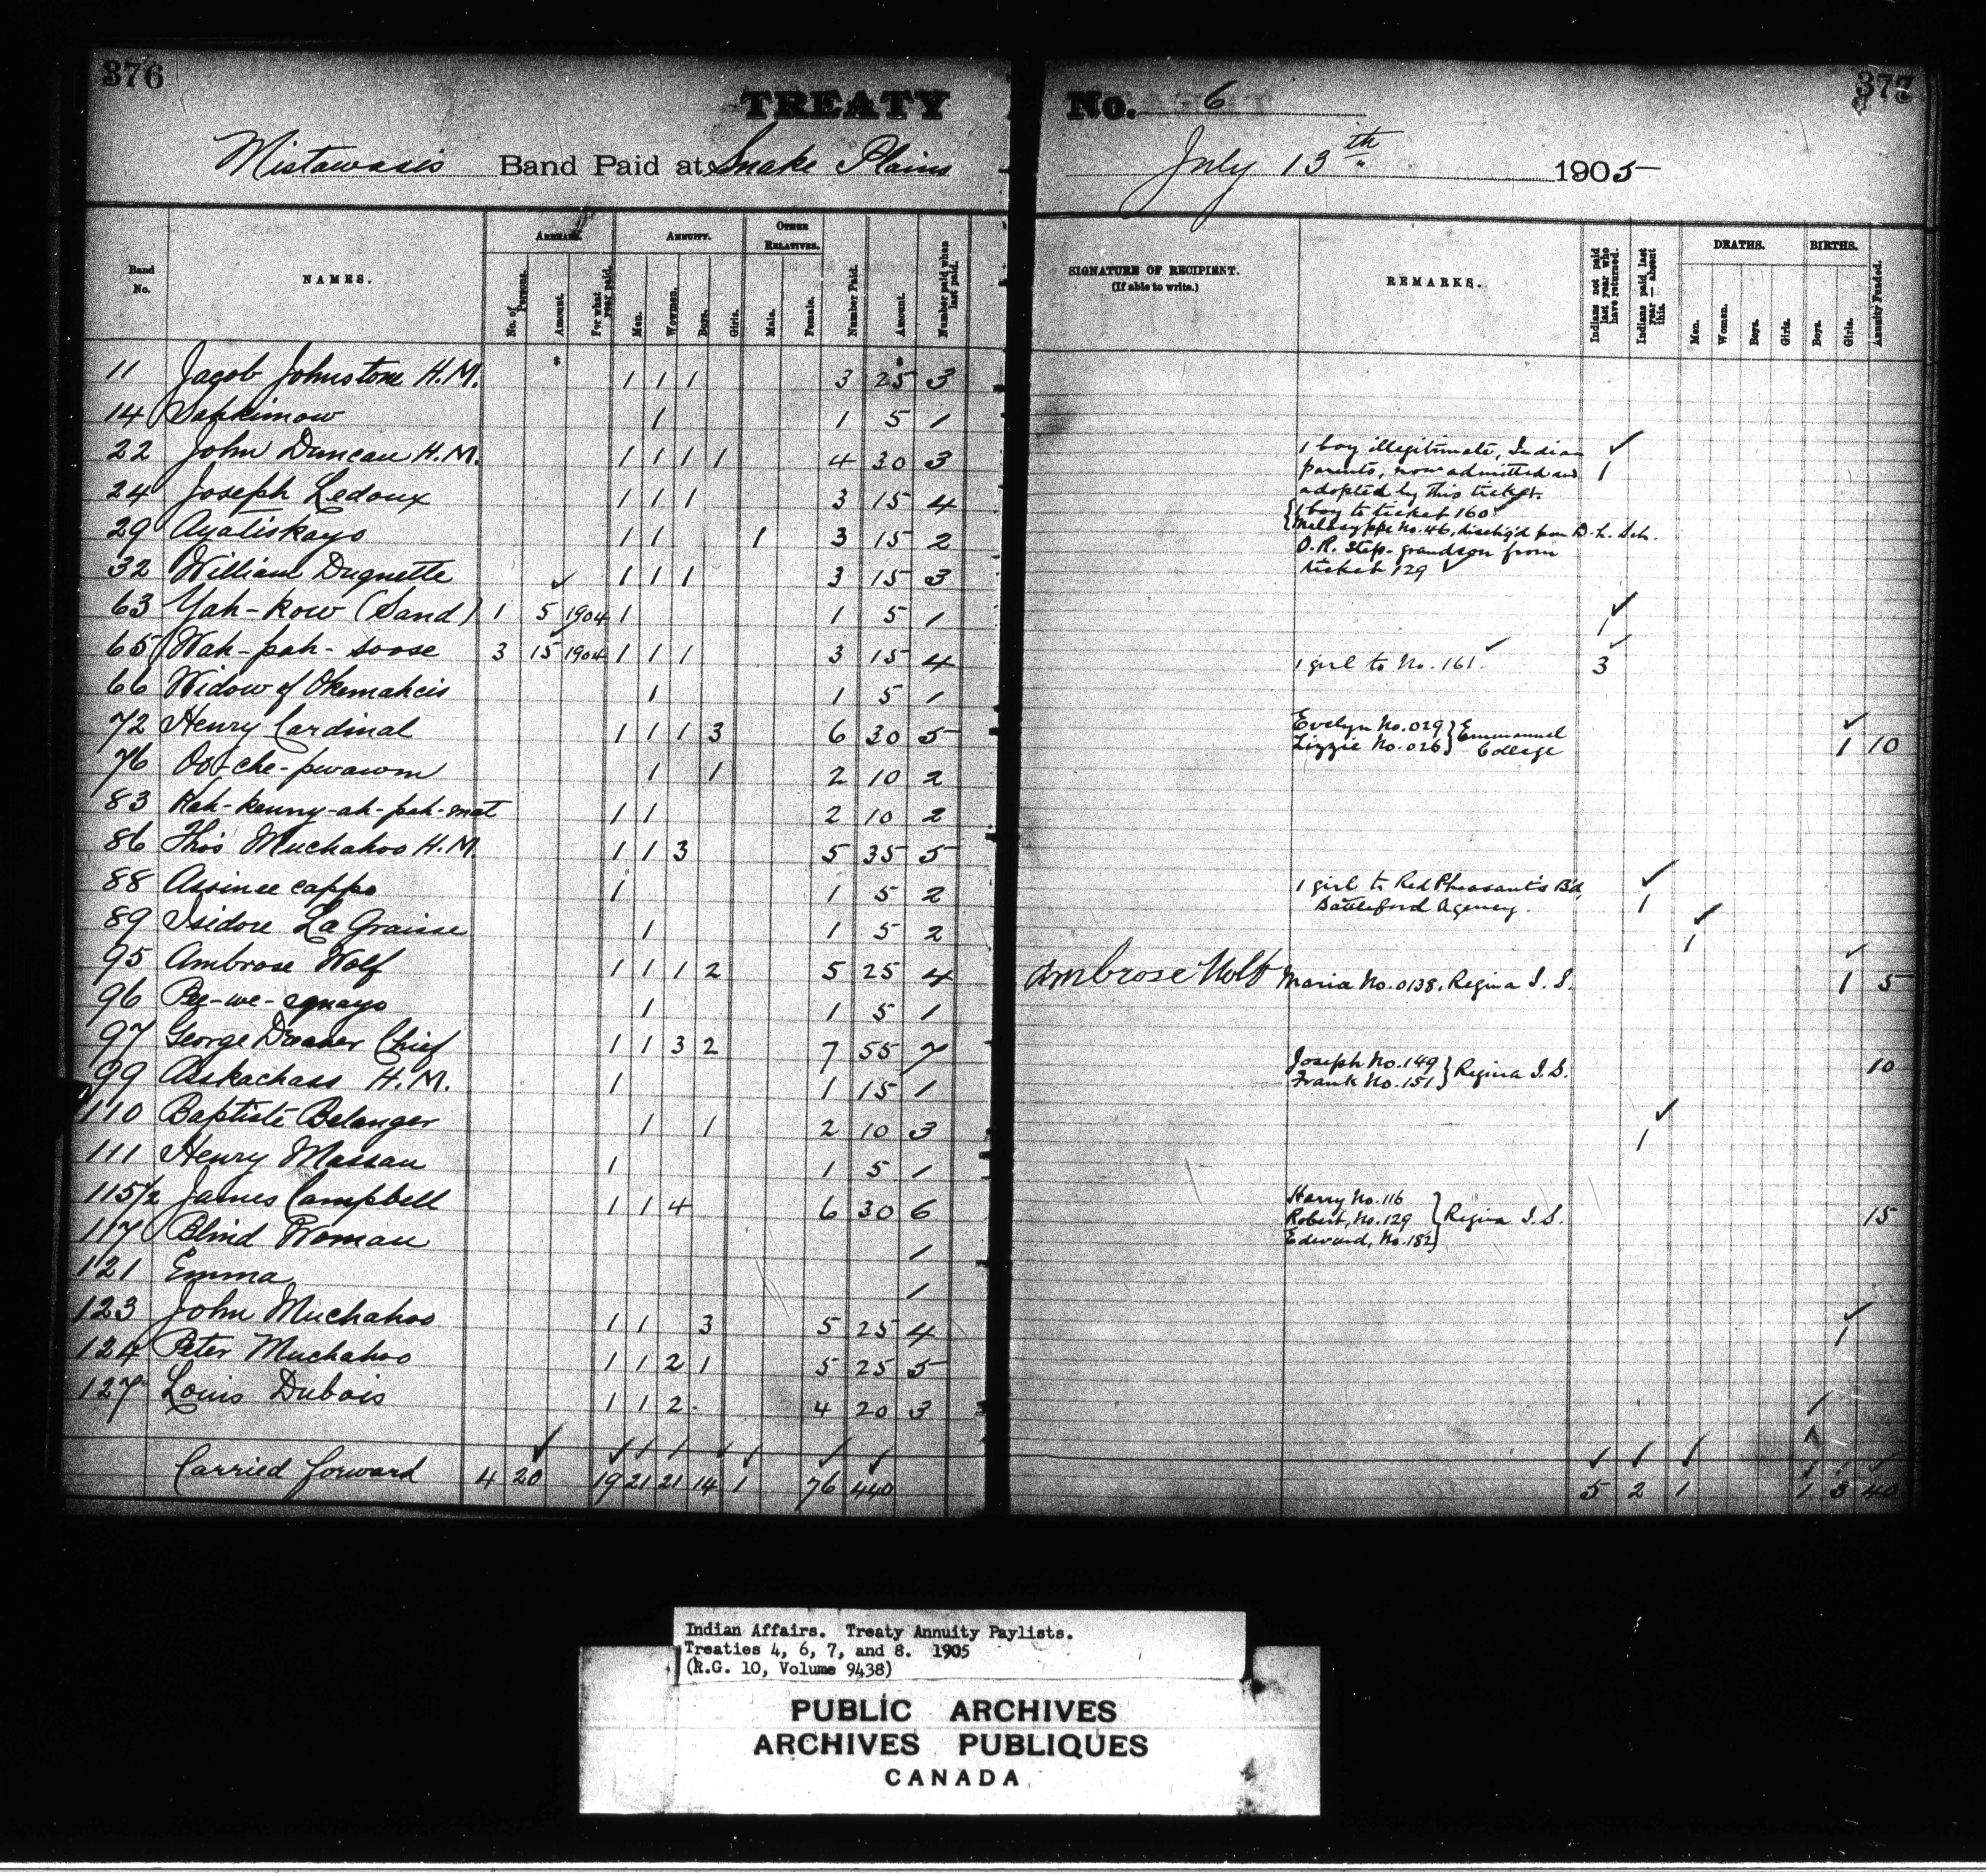 376
TREATY No. 6
377
Mistawasis Band Paid at Snake Plains July 13th 1905
Band No.
NAMES.
ARREARS.
No. of Persons.
Amount.
For what year paid.
ANNUITY.
Men.
Women.
Boys.
Girls.
OTHER RELATIVES.
Male.
Female.
Number Paid.
Amount.
Number paid when last paid.
SIGNATURE OF RECIPIENT.
(If able to write.)
REMARKS.
Indians not paid last year who have returned.
Indians paid last year — absent this.
DEATHS.
Men.
Women.
Boys.
Girls.
BIRTHS.
Boys.
Girls.
Annuity Funded.
11 Jacob Johnstone H.M. 1 1 1 3 25 3
14 Sapkimow 1 1 5 1
22 John Duncan H.M. 1 1 1 1 4 30 3 1 boy illegitimate, Indian parents, now admitted and adopted by this ticket. 1
24 Joseph Ledoux 1 1 1 3 15 4 1 boy to ticket 160
29 Ayatiskayo 1 1 1 3 15 2 No. 46, disch'g'd from D. L. Sch. O.R. Step-grandson from ticket 129
32 William Duquette 1 1 1 3 15 3
63 Yah-kow (Sand) 1 5 1904 1 1 5 1 1
65 Wah-pah-soose 3 15 1904 1 1 1 3 15 4 1 girl to No. 161. 3
66 Widow of Okemahcis 1 1 5 1
72 Henry Cardinal 1 1 1 3 6 30 5 Evelyn No. 029 } Emmanuel
Lizzie No. 026 } College 1 10
76 Oo-che-pwawm 1 1 2 10 2
83 Kah-kenny-ah-pah-mat 1 1 2 10 2
86 Thos Muchahoo H.M. 1 1 3 5 35 5
88 Assinee cappo 1 1 5 2 1 girl to Red Pheasant's B'd, Battleford Agency. 1
89 Isidore La Graisse 1 1 5 2 1
95 Ambrose Wolf 1 1 1 2 5 25 4 Ambrose Wolf Maria No. 0138, Regina I. S. 1 5
96 Pee-we-squayo 1 1 5 1
97 George Dreaver Chief 1 1 3 2 7 55 7 Joseph No. 149
Frank No. 151 } Regina I.S. 10
99 Askachass H.M. 1 1 15 1
110 Baptiste Belanger 1 1 2 10 3 1
111 Henry Massau 1 1 5 1
115½ James Campbell 1 1 4 6 30 6 Harry No. 116
Robert, No. 129 } Regina I.S. 15
Edward, No. 182
117 Blind Woman 1
121 Emma 1
123 John Muchahoo 1 1 3 5 25 4 1
124 Peter Muchahoo 1 1 2 1 5 25 5
127 Louis Dubois 1 1 2 4 20 3 1
Carried forward 4 20 19 21 21 14 1 76 440 5 2 1 1 3 40
Indian Affairs. Treaty Annuity Paylists.
Treaties 4, 6, 7, and 8. 1905
(R.G. 10, Volume 9438)
PUBLIC ARCHIVES
ARCHIVES PUBLIQUES
CANADA